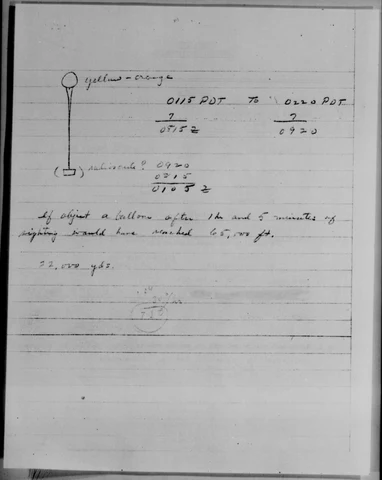 yellow-orange
0115 PDT TO 0220 PDT
7 7
0515 Z 0920
( ) radiosonde? 0920
0215
0105 Z
If object a balloon after 1 hr and 5 minutes of
sighting would have reached 65,000 ft.
22,000 yds.